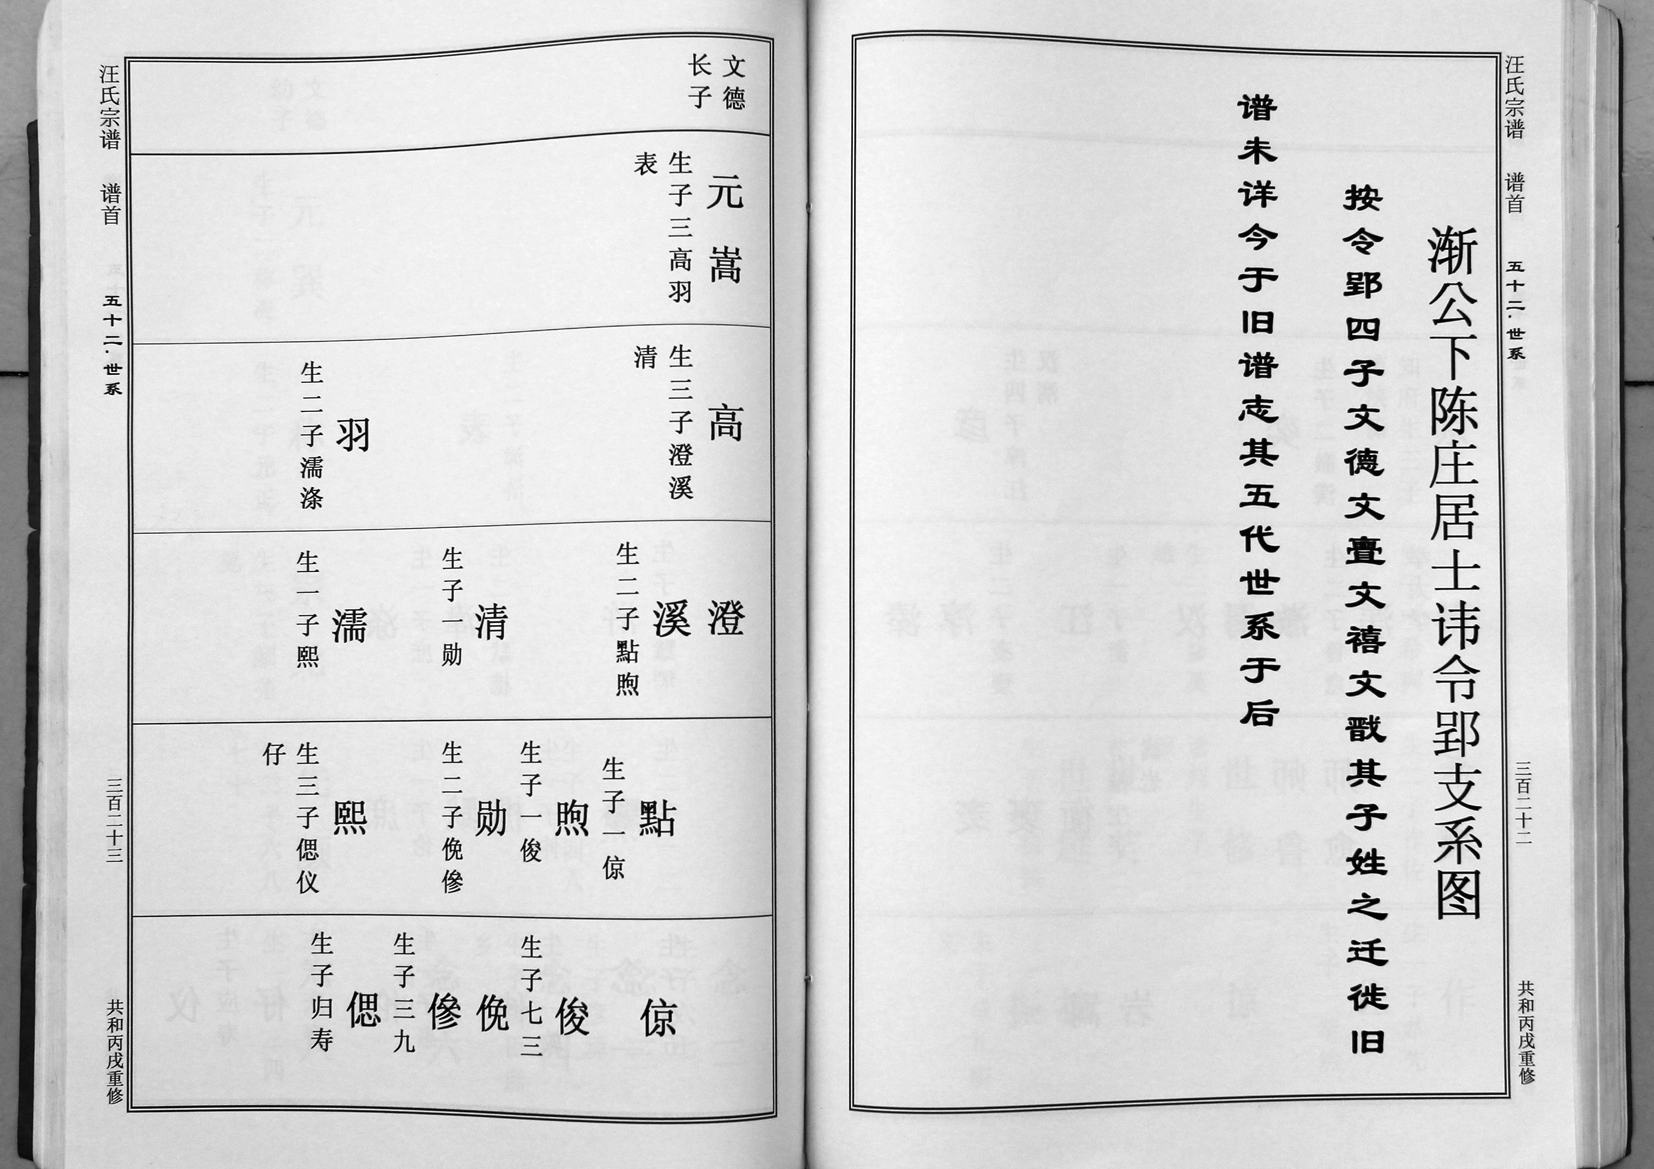 汪氏宗谱　谱首　五十二·世系　三百二十二　共和丙戌重修
渐公下陈庄居士讳令郢支系图
按令郢四子文德文亶文禧文戬其子姓之迁徙旧
谱未详今于旧谱志其五代世系于后
文德
长子
元嵩
生子三高羽
表
高
生三子澄溪
清
羽
生二子濡涤
澄
溪
生二子點煦
清
生子一勋
濡
生一子熙
點
生子一倞
煦
生子一俊
勋
生二子俛傪
熙
生三子偲仪
仔
倞
俊
生子七三
俛
傪
生子三九
偲
生子归寿
汪氏宗谱　谱首　五十二·世系　三百二十三　共和丙戌重修